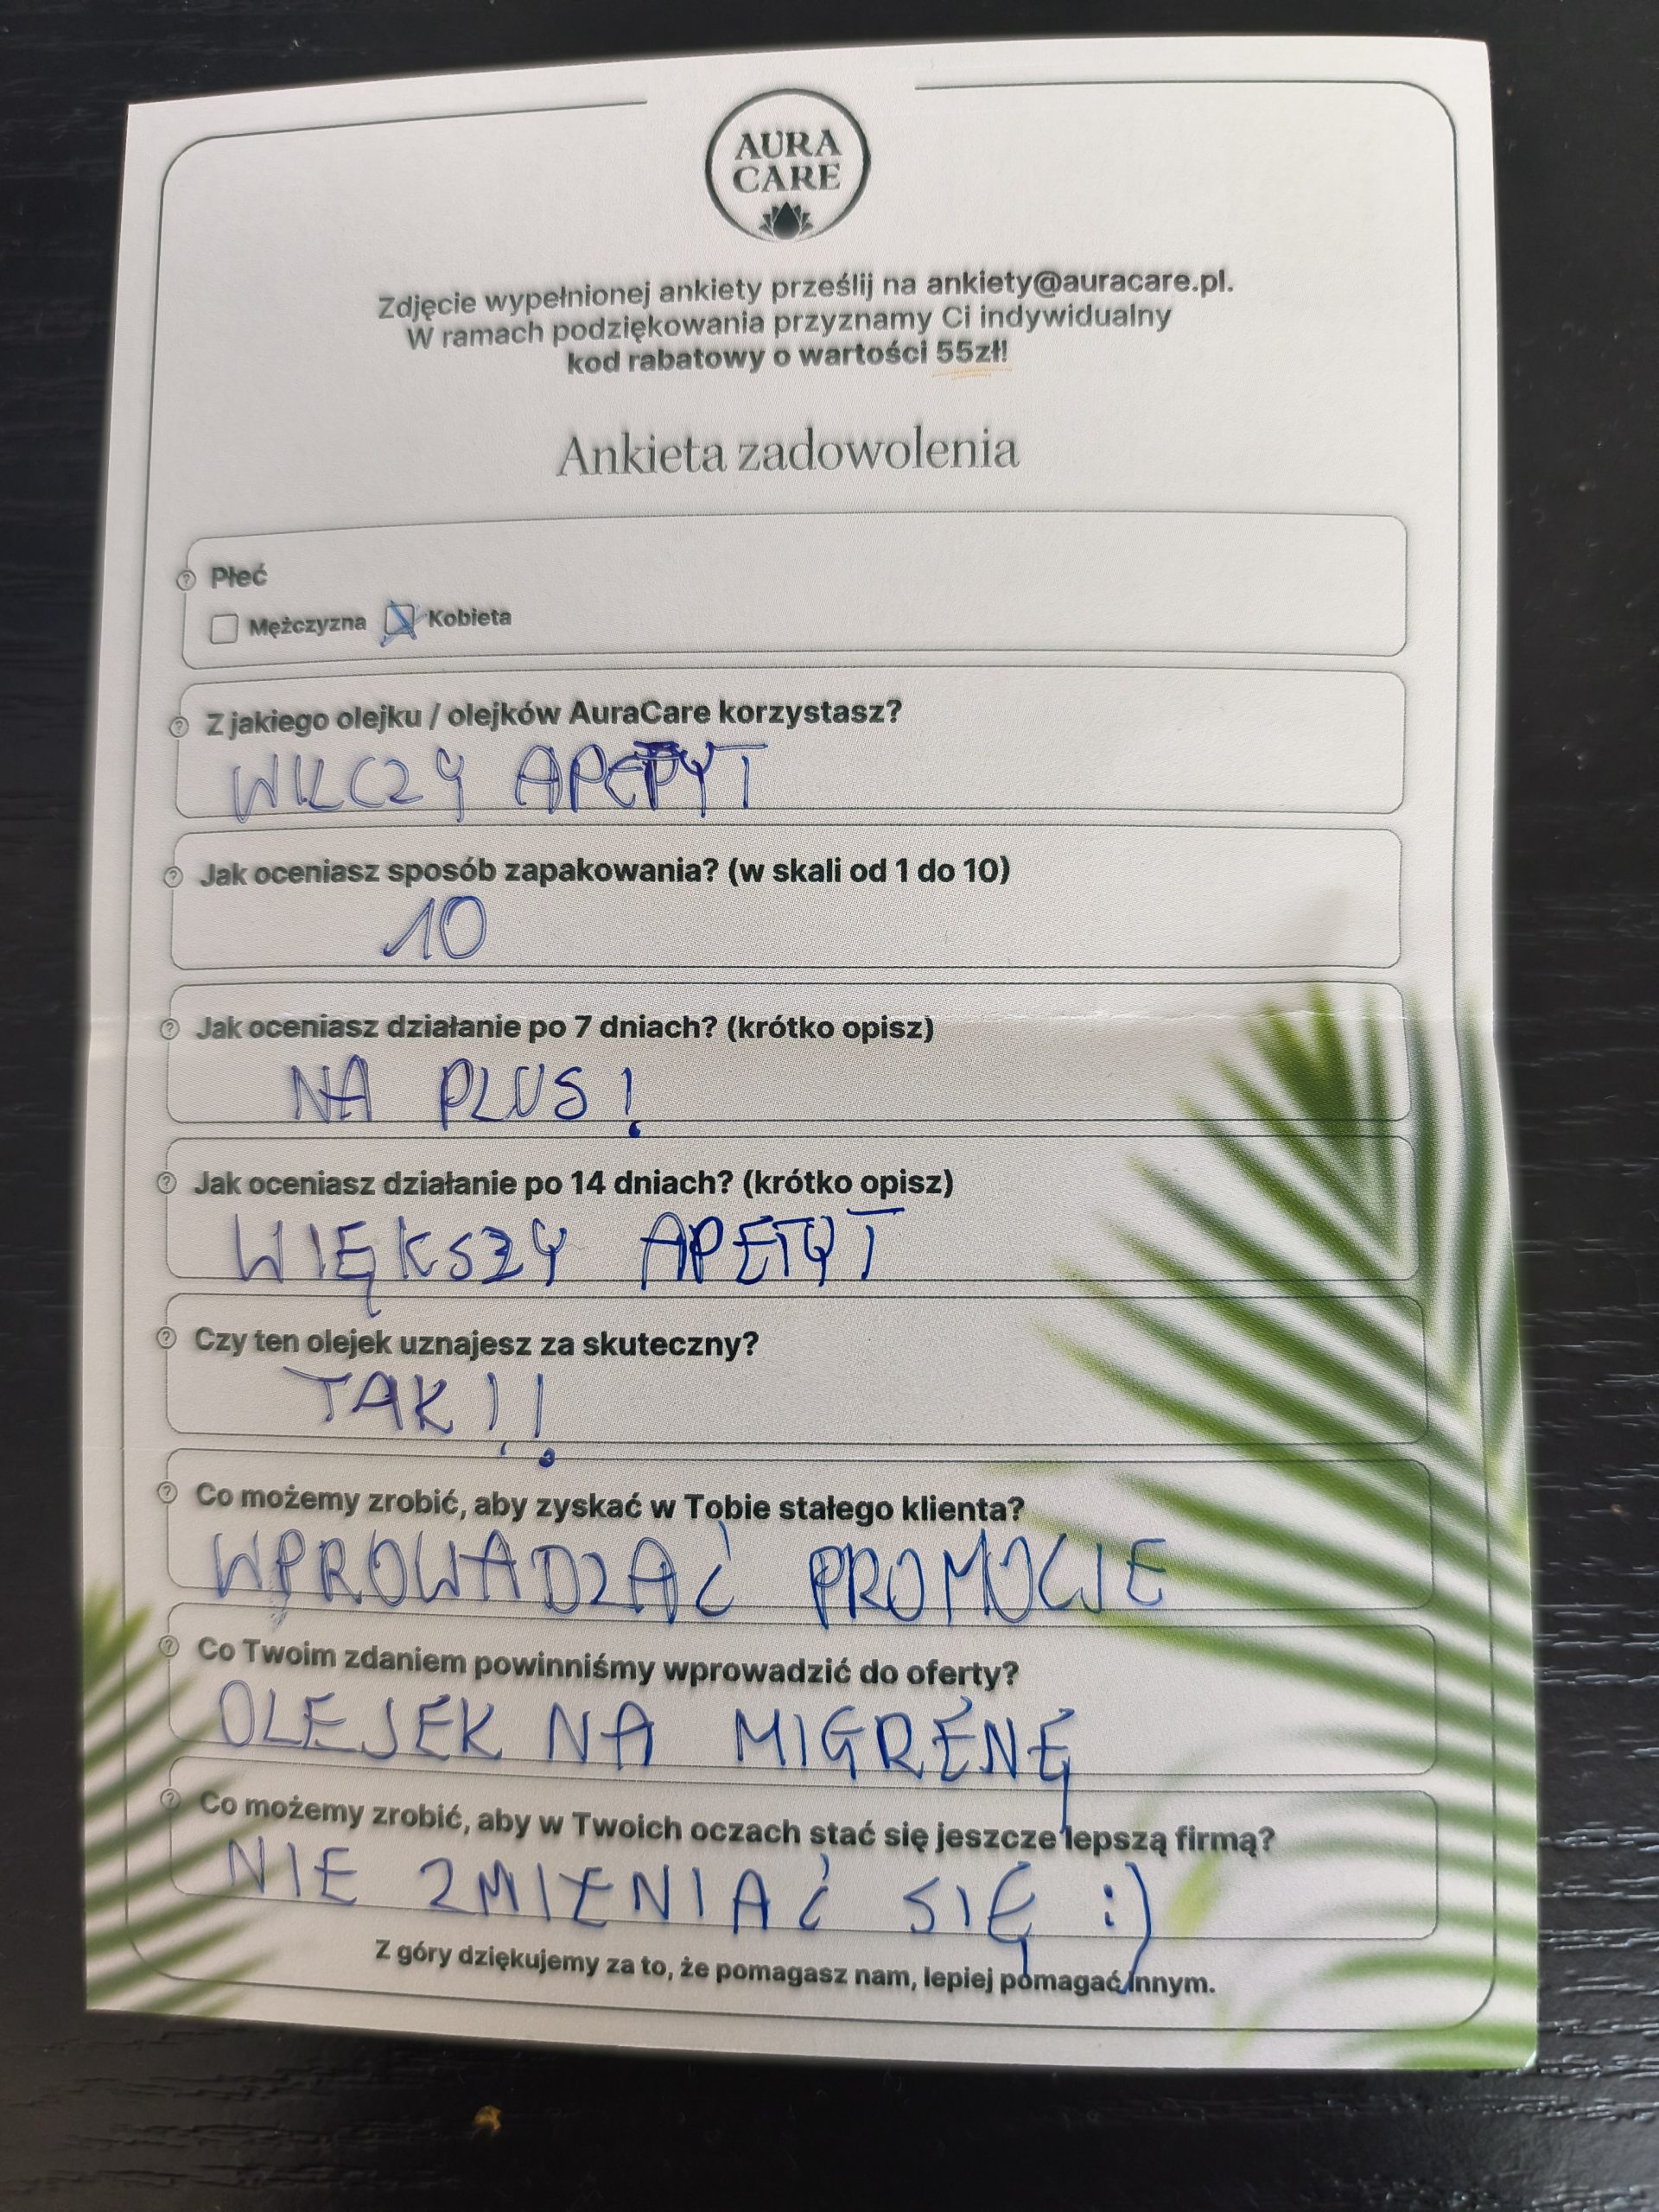 AURA
CARE
Zdjęcie wypełnionej ankiety prześlij na ankiety@auracare.pl.
W ramach podziękowania przyznamy Ci indywidualny
kod rabatowy o wartości 55zł!
Ankieta zadowolenia
Płeć
Mężczyzna Kobieta
Z jakiego olejku / olejków AuraCare korzystasz?
WILCZY APETYT
Jak oceniasz sposób zapakowania? (w skali od 1 do 10)
10
Jak oceniasz działanie po 7 dniach? (krótko opisz)
NA PLUS!
Jak oceniasz działanie po 14 dniach? (krótko opisz)
WIĘKSZY APETYT
Czy ten olejek uznajesz za skuteczny?
TAK!!
Co możemy zrobić, aby zyskać w Tobie stałego klienta?
WPROWADZAĆ PROMOCJE
Co Twoim zdaniem powinniśmy wprowadzić do oferty?
OLEJEK NA MIGRENĘ
Co możemy zrobić, aby w Twoich oczach stać się jeszcze lepszą firmą?
NIE ZMIENIAĆ SIĘ :)
Z góry dziękujemy za to, że pomagasz nam, lepiej pomagać innym.